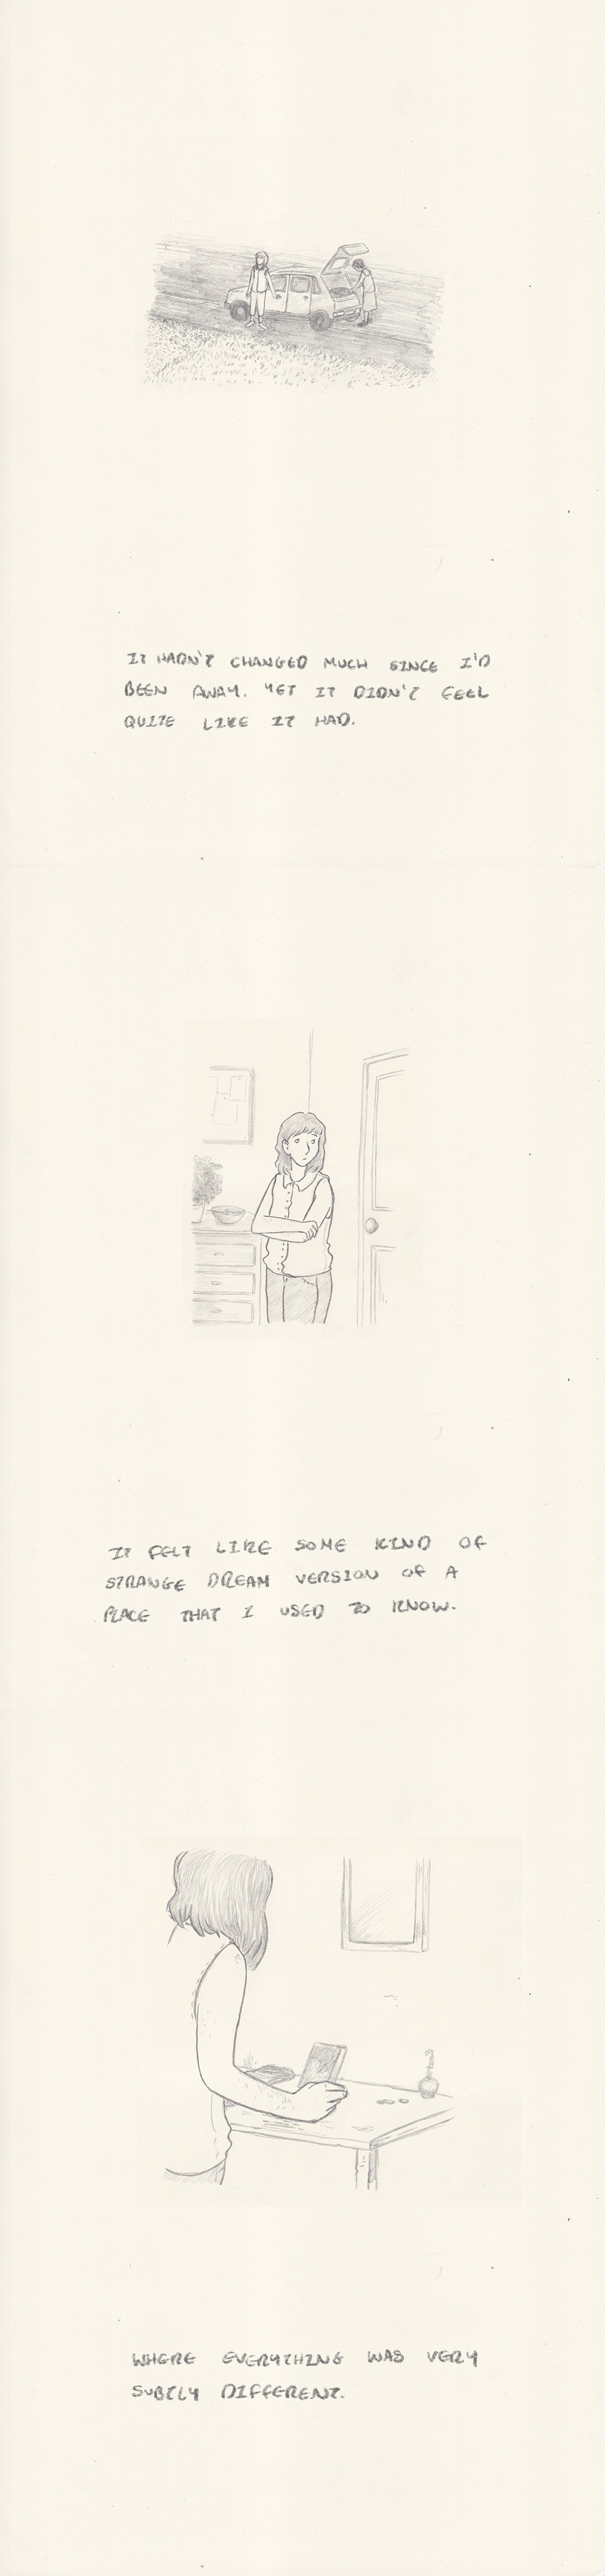 IT HADN'T CHANGED MUCH SINCE I'D
BEEN AWAY. YET IT DIDN'T FEEL
QUITE LIKE IT HAD.
IT FELT LIKE SOME KIND OF
STRANGE DREAM VERSION OF A
PLACE THAT I USED TO KNOW.
WHERE EVERYTHING WAS VERY
SUBTLY DIFFERENT.